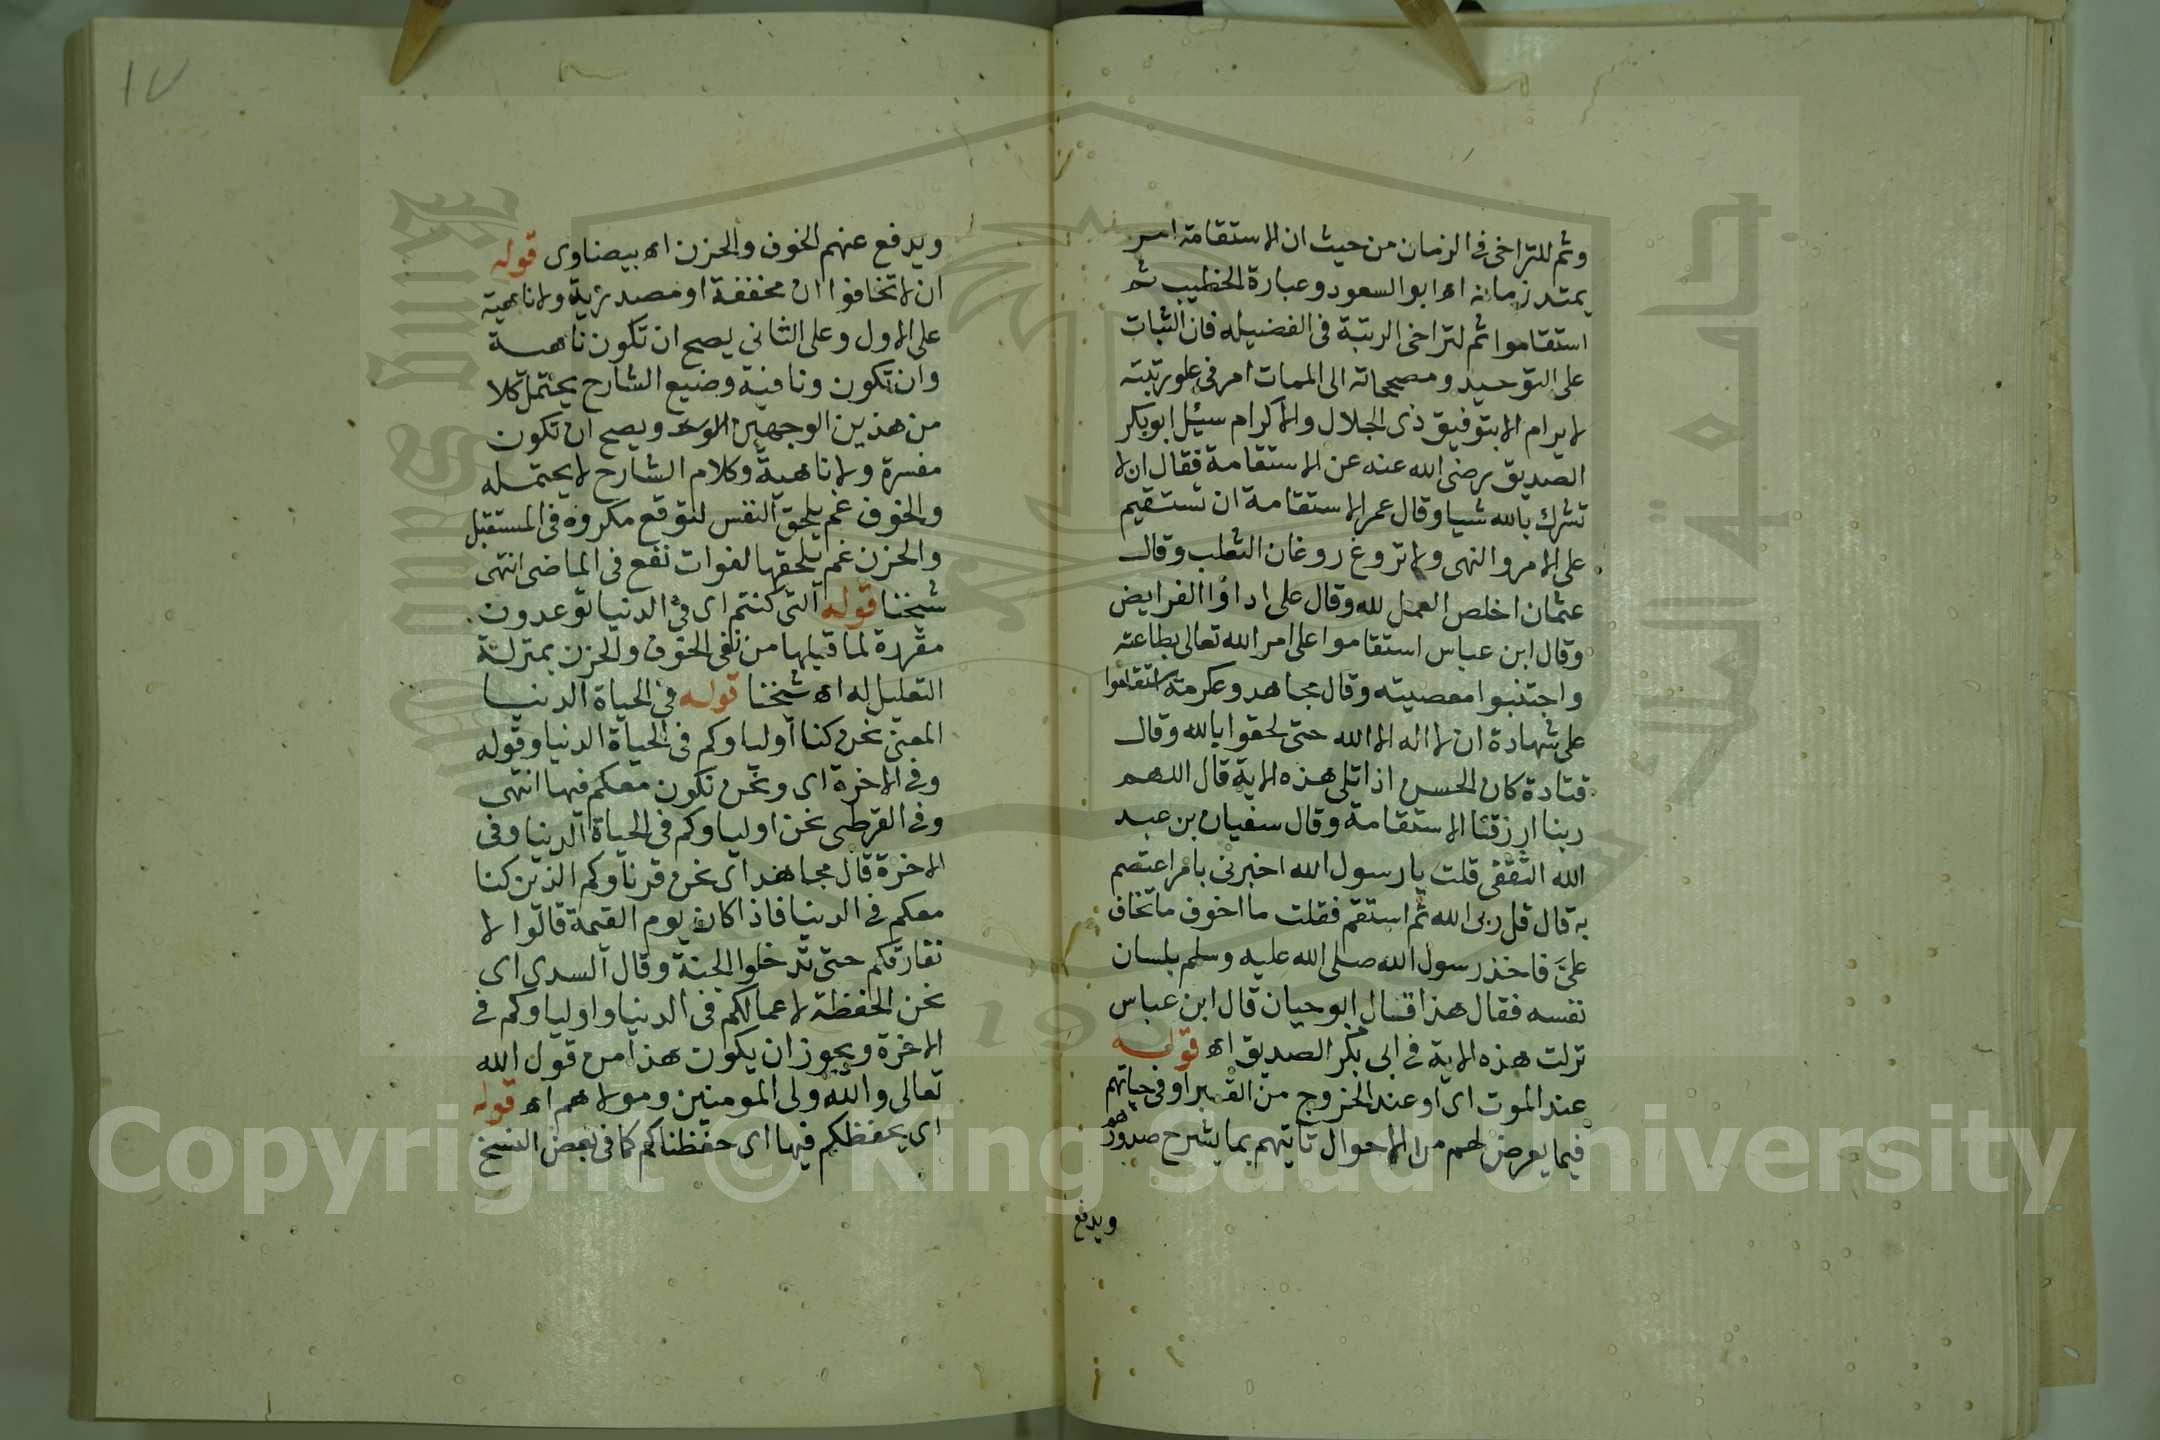 وثم للتراخى فى الزمان من حيث ان الاستقامة امر
يمتد زمانه اه ابو السعود وعبارة الخطيب ثم
استقاموا ثم لتراخى الرتبة فى الفضيله فان الثبات
على التوحيد ومصححاته الى الممات امر فى علو رتبته
لا يرام الا بتوفيق ذى الجلال والاكرام سئيل ابو بكر
الصديق رضى الله عنه عن الاستقامة فقال ان لا
تشرك بالله شيا وقال عمر الاستقامة ان تستقيم
على الامر والنهى ولا تروغ روغان الثعلب وقال
عثمان اخلص العمل لله وقال على اداؤا الفرايض
وقال ابن عباس استقاموا على امر الله تعالى بطاعته
واجتنبوا معصيته وقال مجاهد وعكرمة استقاموا
على شهادة ان لا اله الا الله حتى لحقوا بالله وقال
قتادة كان الحسن اذا تلى هذه الاية قال اللهم
ربنا ارزقنا الاستقامة وقال سفيان بن عبد
الله الثقفى قلت يا رسول الله اخبرنى بامر اعتصم
به قال قل ربى الله ثم استقم فقلت ما اخوف ما تخاف
علىَّ فاخذ رسول الله صلى الله عليه وسلم بلسان
نفسه فقال هذا قال ابو حيان قال ابن عباس
نزلت هذه الاية فى ابى بكر الصديق اه قوله
عند الموت اى او عند الخروج من القبر او فى حياتهم
فيما يعرض لهم من الاحوال تاتيهم بما يشرح صدورهم
ويدفع
١٧
ويدفع عنهم الخوف والحزن اه بيضاوى قوله
ان لا تخافوا ان مخففة او مصدرية ولا ناهية
على الاول وعلى الثانى يصح ان تكون ناهية
وان تكون ونافية وضيع الشارح يحتمل كلا
من هذين الوجهين ويصح ان تكون
مفسرة ولا ناهية وكلام الشارح لا يحتمله
والخوف غم يلحق النفس لتوقع مكروه فى المستقبل
والحزن غم يلحقها لفوات نفع فى الماضى انتهى
شيخنا قوله التى كنتم اى فى الدنيا توعدون
مقررة لما قبلها من نفى الخوف والحزن بمنزلة
التعليل له اه شيخنا قوله فى الحياة الدنيا
المعنى نحن كنا اولياوكم فى الحياة الدنيا وقوله
وفى الاخرة اى ونحن نكون معكم فيها انتهى
وفى القرطبى نحن اولياوكم فى الحياة الدنيا وفى
الاخرة قال مجاهد اى نحن قرناوكم الذين كنا
معكم فى الدنيا فاذا كان يوم القيمة قالوا لا
نفارقكم حتى تدخلوا الجنة وقال السدى اى
نحن الحفظة لاعمالكم فى الدنيا واولياوكم فى
الاخرة ويجوز ان يكون هذا من قول الله
تعالى والله ولى المومنين ومولاهم اه قوله
اى يحفظكم فيها اى حفظناكم كما فى بعض النسخ
جامعة الملك سعود
King Saud University
1957
Copyright © King Saud University